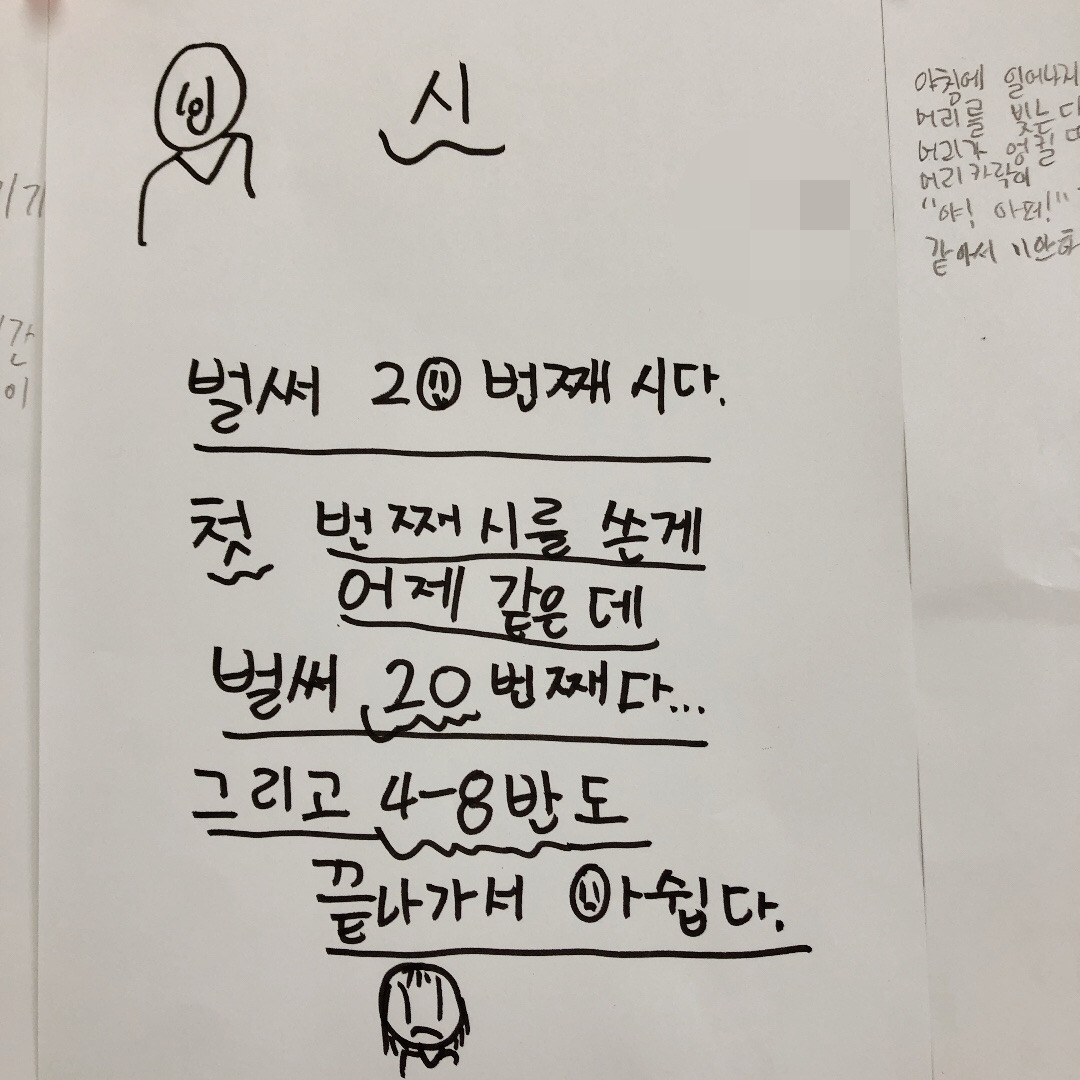 시
벌써 20번째 시다.
첫 번째 시를 쓴게
어제 같은데
벌써 20번째다...
그리고 4-8반도
끝나가서 아쉽다.
아침에
머리를 빗는다
머리가 엉킬
머리카락이
"야! 아퍼!"
같아서 미안하